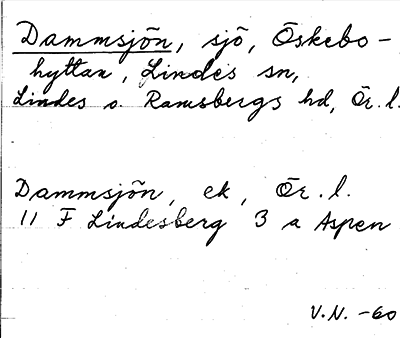 Dammsjön, sjö, Öskebo-
hyttan, Lindes sn,
Lindes o. Ramsbergs hd, Ör. l.
Dammsjön, ek, Ör. l.
11 F Lindesberg 3 a Aspen
V.N. -60